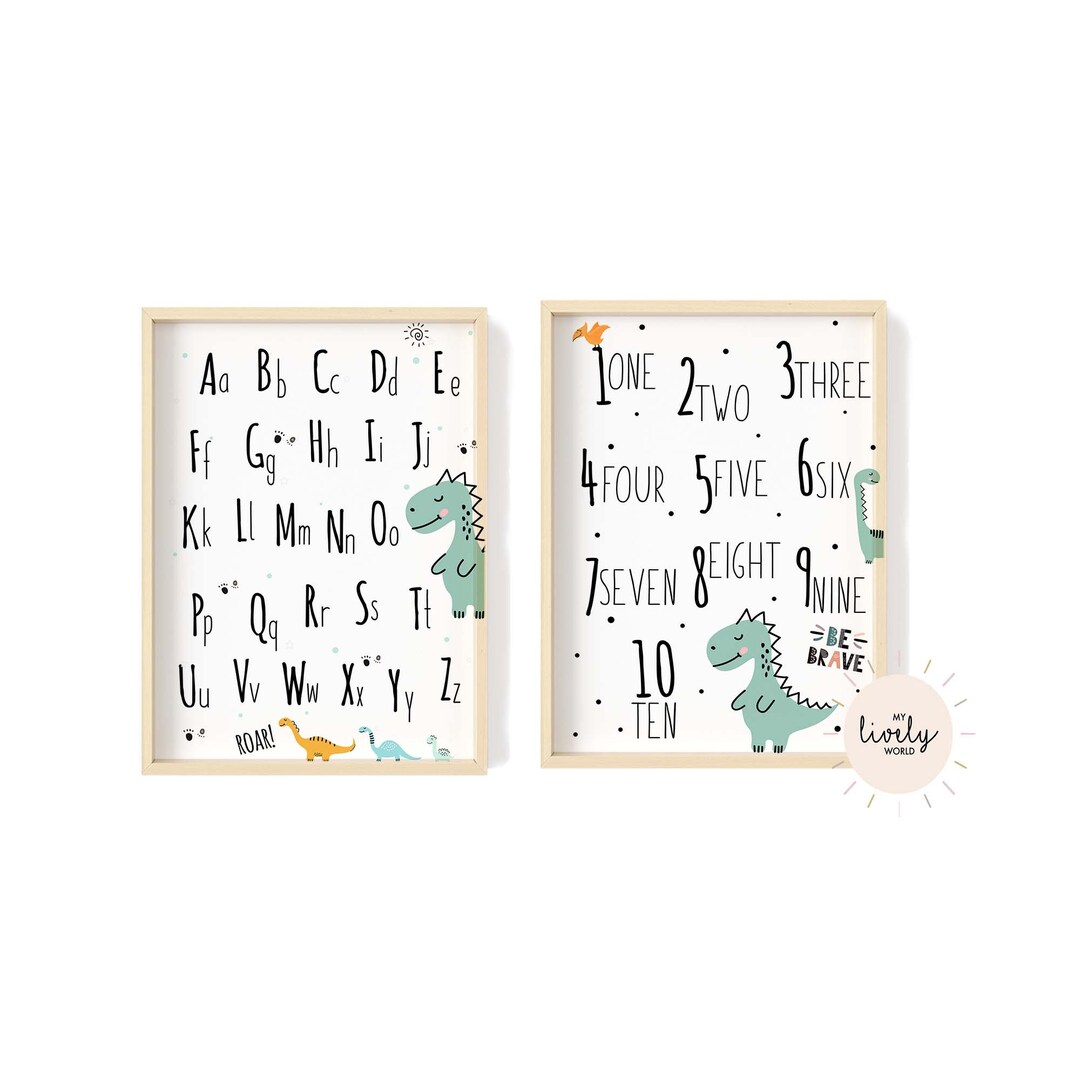 Aa Bb Cc Dd Ee
Ff Gg Hh Ii Jj
Kk Ll Mm Nn Oo
Pp Qq Rr Ss Tt
Uu Vv Ww Xx Yy Zz
ROAR!
1 ONE 2 TWO 3 THREE
4 FOUR 5 FIVE 6 SIX
7 SEVEN 8 EIGHT 9 NINE
BE
BRAVE
10
TEN
MY
lively
WORLD